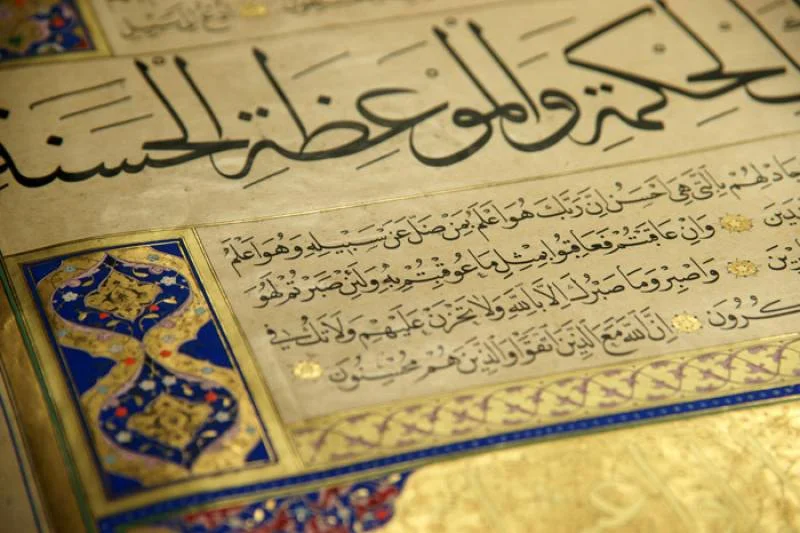 الحكمة والموعظة الحسنة
جَادِلْهُمْ بِالَّتِي هِيَ اَحْسَنُ اِنَّ رَبَّكَ هُوَ اَعْلَمُ بِمَنْ ضَلَّ عَنْ سَبِيلِهِ وَهُوَ اَعْلَمُ
وَاِنْ عَاقَبْتُمْ فَعَاقِبُوا بِمِثْلِ مَا عُوقِبْتُمْ بِهِ وَلَئِنْ صَبَرْتُمْ لَهُوَ
وَاصْبِرْ وَمَا صَبْرُكَ اِلَّا بِاللَّهِ وَلَا تَحْزَنْ عَلَيْهِمْ وَلَا تَكُ فِي
كُرُونَ اِنَّ اللَّهَ مَعَ الَّذِينَ اتَّقَوْا وَالَّذِينَ هُمْ مُحْسِنُونَ